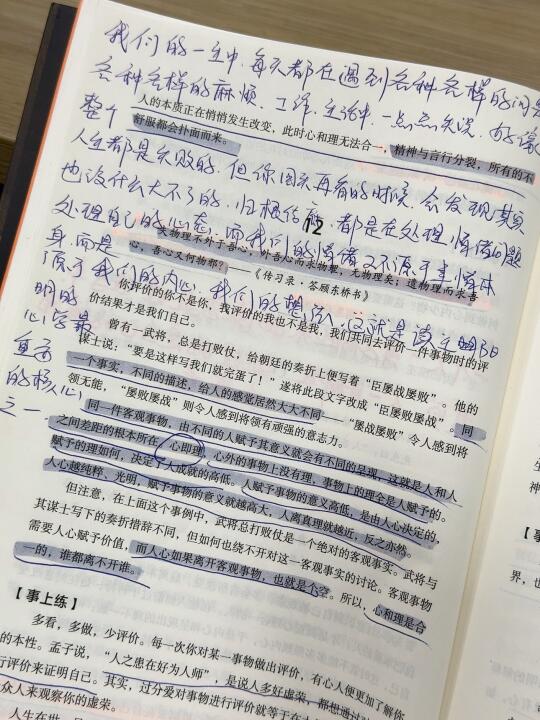 我们的一生中，每天都在遇到各种各样的问题
各种各样的麻烦，工作、生活中，一点点失误，好像
整个
人的本质正在悄悄发生改变，此时心和理无法合一，精神与言行分裂，所有的不
舒服都会扑面而来。
人生都是失败的，但你回头再看的时候，会发现其实
也没什么大不了的，归根结底，都是在处理情绪问题
12
处理自己的心态，而我们的情绪又不源于事情本
夫物理不外于吾心，外吾心而求物理，无物理矣；遗物理而求吾
心，吾心又何物邪？——《传习录·答顾东桥书》
身，而是
源于我们的内心，我们的想法，这就是读王阳
明的
心学最
真实
的核心
之一
你评价的你不是你，我评价的我也不是我，我们共同去评价一件事物时的评
价结果才是我们自己。
曾有一武将，总是打败仗，给朝廷的奏折上便写着“臣屡战屡败”。他的
谋士说，“要是这样写我们就完蛋了！”遂将此段文字改成“臣屡败屡战”。同
一个事实，不同的描述，给人的感觉居然大大不同——“屡战屡败”令人感到将
领无能，“屡败屡战”则令人感到将领有顽强的意志力。
同一件客观事物，由不同的人赋予其意义就会有不同的呈现，这就是人和人
之间差距的根本所在。心即理，心外的事物上没有理，事物上的理全是人赋予的。
赋予的理如何，决定了人成就的高低。人赋予事物的意义高低，是由人心决定的，
人心越纯粹、光明，赋予事物的意义就越高大，人离真理就越近，反之亦然。
但注意，在上面这个事例中，武将总打败仗是一个绝对的客观事实。武将与
其谋士写下的奏折措辞不同，但如何也绕不开对这一客观事实的讨论。客观事物
需要人心赋予价值，而人心如果离开客观事物，也就是个空。所以，心和理是合
一的，谁都离不开谁。
【事上练】
多看，多做，少评价。每一次你对某一事物做出评价，有心人便更加了解你
的本性。孟子说，“人之患在好为人师”，是说人多好虚荣，都想通过
行评价来证明自己。其实，过分爱对事物进行评价就等于在
众人来观察你的虚荣。
人生在世，
【事
界，也